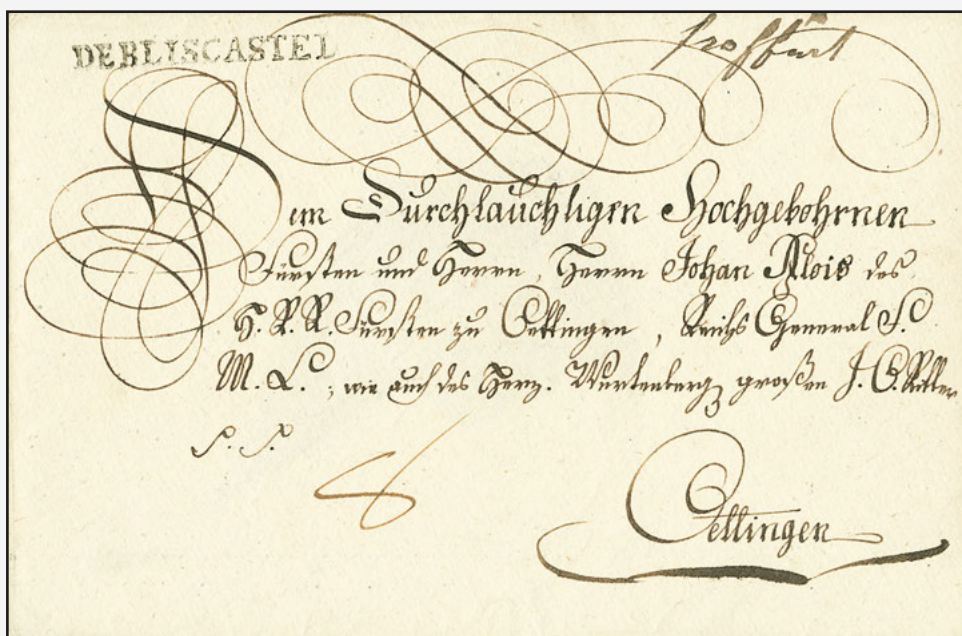 DEBLISCASTEL
franffurt
Dem Durchlauchtigen Hochgebohrnen
Fürsten und Herrn, Herrn Johan Alois des
H. R. R. Fürsten zu Oettingen, Reichs General F.
M. L.; wie auch des Herz. Würtenberg großen J. O. Ritter
P. P.
8
Oettingen